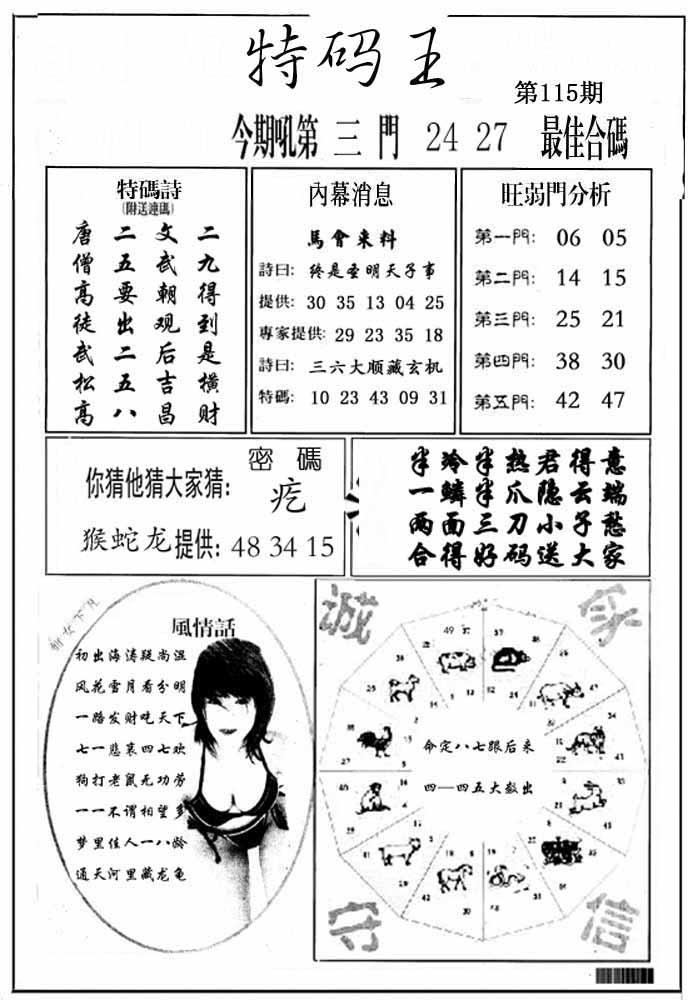 特码王
第115期
今期吼第 三 門 24 27 最佳合碼
特碼詩
(附送連碼)
唐 二 文 二
僧 五 武 九
高 要 朝 得
徒 出 观 到
武 二 后 是
松 五 吉 横
高 八 昌 财
內幕消息
馬會来料
詩曰: 终是圣明天子事
提供: 30 35 13 04 25
專家提供: 29 23 35 18
詩曰: 三六大顺藏玄机
特碼: 10 23 43 09 31
旺弱門分析
第一門: 06 05
第二門: 14 15
第三門: 25 21
第四門: 38 30
第五門: 42 47
密碼
你猜他猜大家猜: 疙
猴蛇龙提供: 48 34 15
半冷半热君得意
一鳞半爪隐云端
两面三刀小子愁
合得好码送大家
风情話
初出海涛疑尚湿
风花雪月看分明
一路发财吃天下
七一悲哀四七欢
狗打老鼠无功劳
一一不谓相望多
梦里佳人一八龄
通天河里藏龙龟
诚
守
信
命定八七跟后来
四—四五大数出